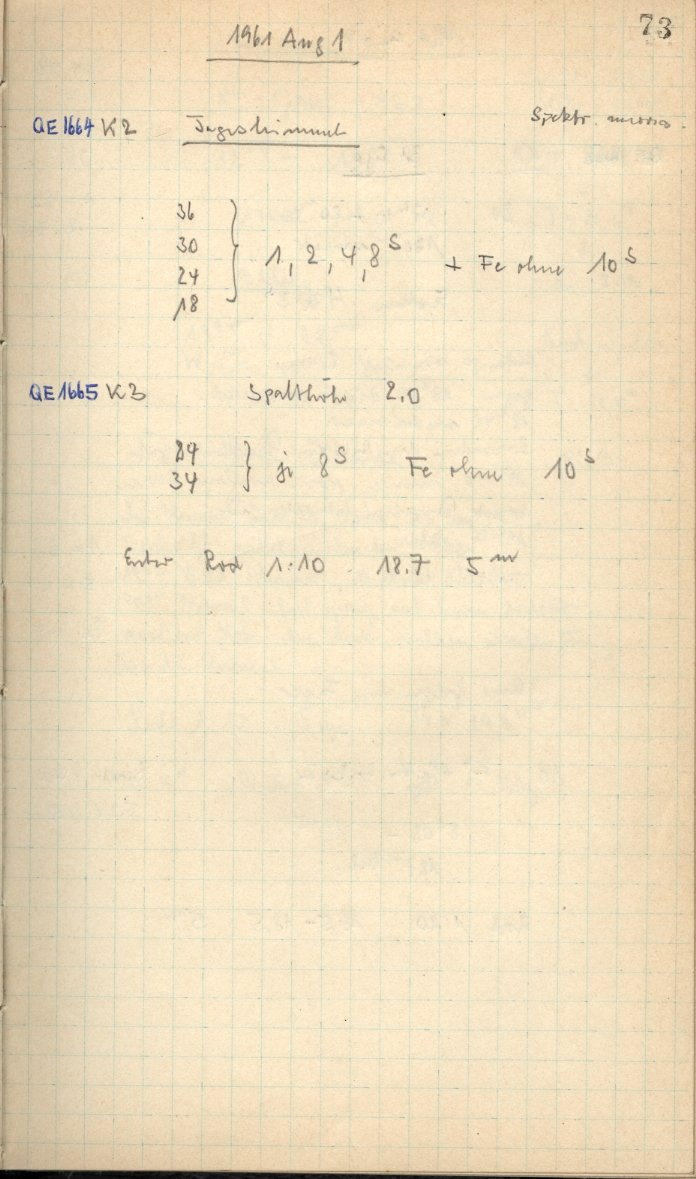 73
1961 Aug 1
QE1664 K2 Tageshimmel Spektr.
36
30
24
18
} 1, 2, 4, 8 s + Fe ohne 10 s
QE1665 K3 Spalthöhe 2.0
84
34
} je 8 s Fe ohne 10 s
Entw Rod 1:10 18.7 5 m